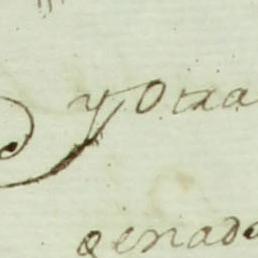 y otra
genado